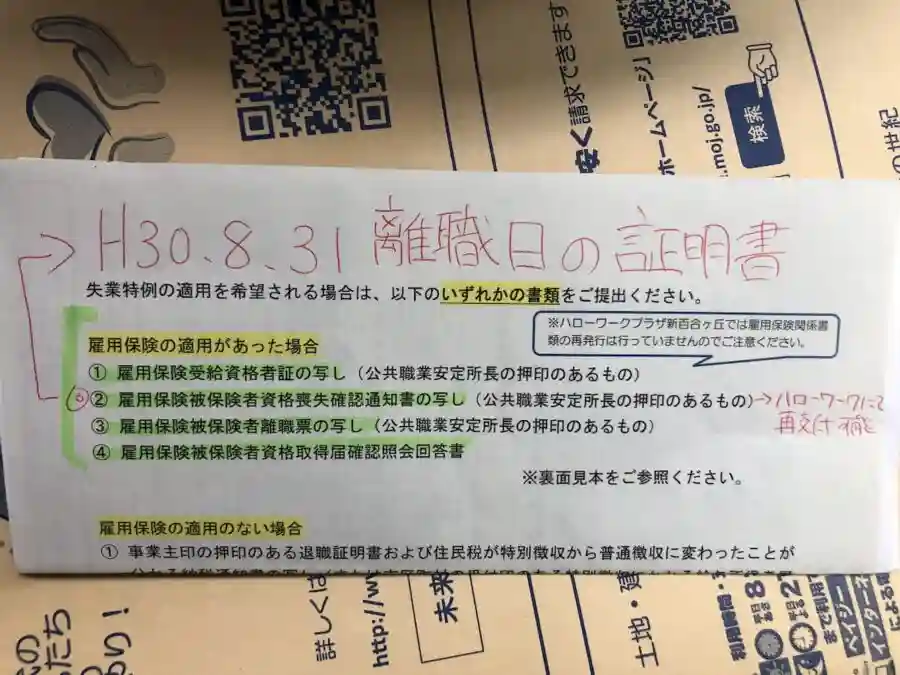 安く請求できます
ホームページ」
.moj.go.jp/
検索
の世紀
H30.8.31 離職日の証明書
失業特例の適用を希望される場合は、以下のいずれかの書類をご提出ください。
※ハローワークプラザ新百合ヶ丘では雇用保険関係書
類の再発行は行っていませんのでご注意ください。
雇用保険の適用があった場合
① 雇用保険受給資格者証の写し（公共職業安定所長の押印のあるもの）
② 雇用保険被保険者資格喪失確認通知書の写し（公共職業安定所長の押印のあるもの）→ハローワークにて
再交付可能
③ 雇用保険被保険者離職票の写し（公共職業安定所長の押印のあるもの）
④ 雇用保険被保険者資格取得届確認照会回答書
※裏面見本をご参照ください。
雇用保険の適用のない場合
① 事業主印の押印のある退職証明書および住民税が特別徴収から普通徴収に変わったことが
詳しくは
http://w
未来
土地・建
利用時間・
平日 8
平日 2
まで利用
ペイジー
インター
による
の
たち
あり！